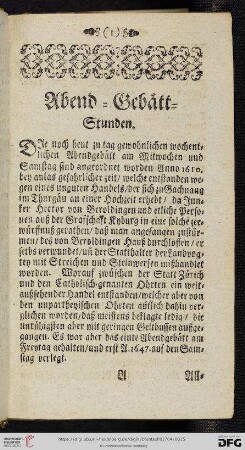 (1)
Abend-Gebätt-
Stunden.
Die noch heut zu tag gewohnlichen wochent-
lichen Abendgebätt am Mitwochen und
Samstag sind angeordnet worden Anno 1610.
bey anlas gefahrlicher zeit/ welche entstanden we-
gen eines unguten Handels/ der sich zu Gachnang
im Thurgäu an einer Hochzeit erhebt/ da Jun-
ker Hector von Beroldingen und etliche Perso-
nen auß der Grafschaft Kyburg in eine solche zer-
würffnuß gerathen/ daß man angefangen zustür-
men/ des von Beroldingen Hauß durchloffen/ er
selbs verwundet/ und der Statthalter der Landvog-
tey mit Streichen und Steinwerfen mißhandlet
worden. Worauf zwüschen der Statt Zürich
und den Catholisch-genanten Ohrten ein weit-
außsehender Handel entstanden/ welcher aber von
den unpartheyischen Ohrten gütlich dahin ver-
glichen worden/ daß meistens beklagte ledig/ die
unrühigsten aber mit geringen Geltbussen außge-
gangen. Es war aber das eine Abendgebätt am
Freytag gehalten/ und erst A. 1647. auf den Sam-
stag verlegt.
A
All-